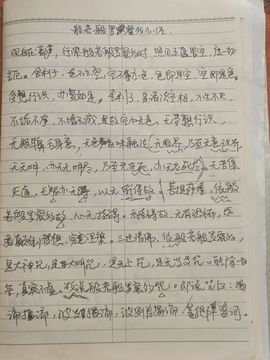 般若般罗密多心经
观自在菩萨，行深般若般罗密多时，照见五蕴皆空，度一切
苦厄。舍利子，色不亦空，空不亦色，色即是空，空即是色。
受想行识，亦复如是。舍利子，是诸法空相，不生不灭，
不垢不净，不增不减，是故空中无色，无受想行识，
无眼耳鼻舌身意，无色声香味触法，无眼界，乃至无意识界，
无无明，亦无无明尽，乃至无老死，亦无老死尽。无苦集
灭道，无智亦无得，以无所得故，菩提萨埵，依般
若般罗密多故，心无挂碍。无挂碍故，无有恐怖，远
离颠倒梦想，究竟涅槃。三世诸佛，依般若般罗密多故，
是大神咒，是大明咒，是无上咒，是无等等咒。能除一切
苦，真实不虚。故说般若般罗密多咒。即说咒曰：揭
谛揭谛，波罗揭谛，波罗僧揭谛，菩提萨婆诃。